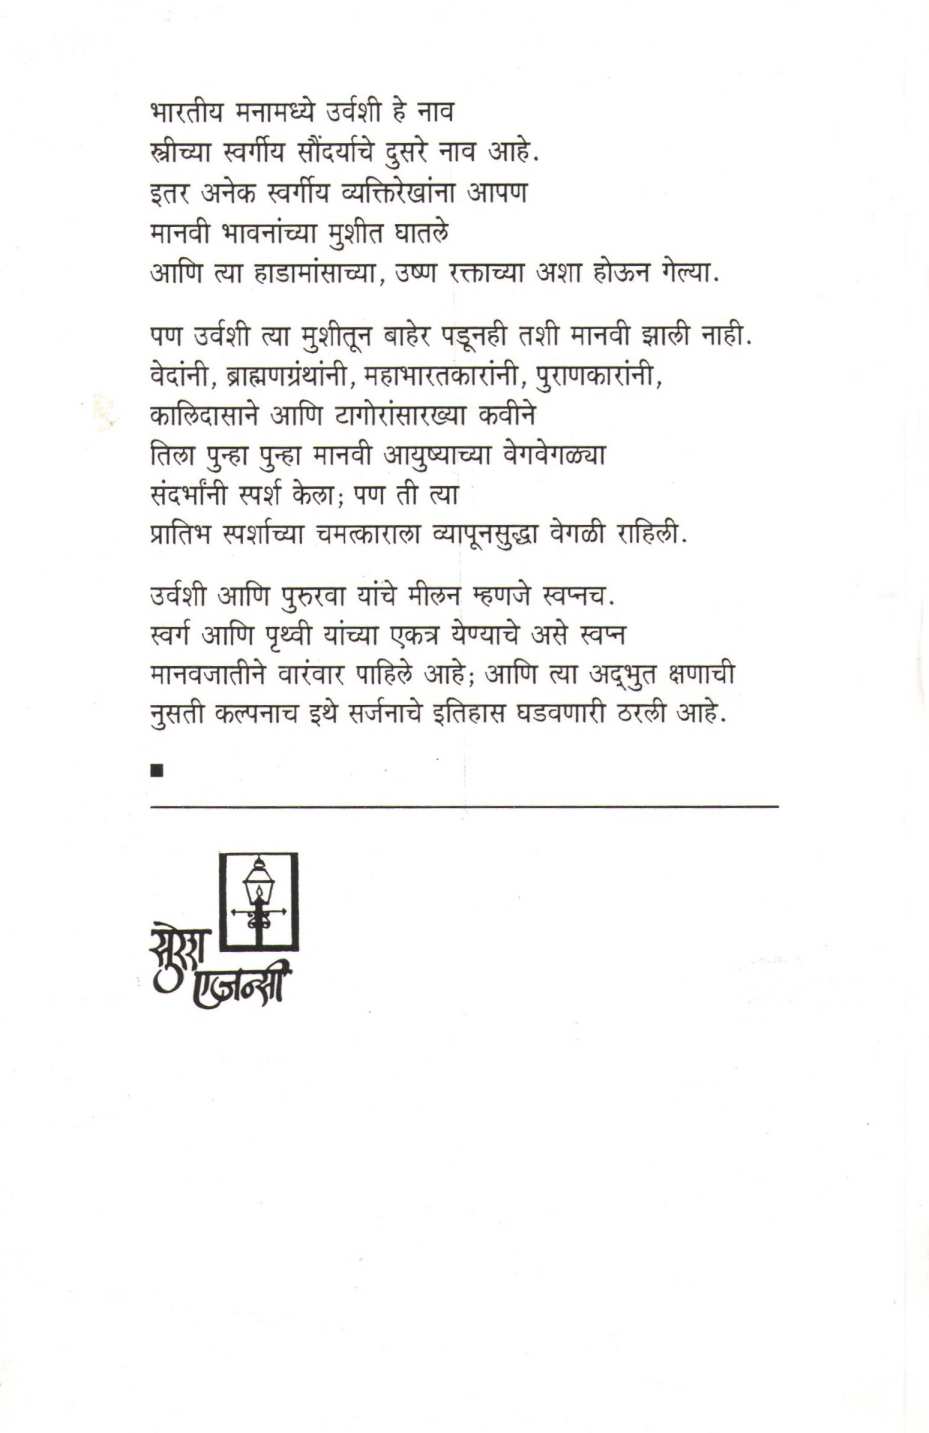 भारतीय मनामध्ये उर्वशी हे नाव
स्त्रीच्या स्वर्गीय सौंदर्याचे दुसरे नाव आहे.
इतर अनेक स्वर्गीय व्यक्तिरेखांना आपण
मानवी भावनांच्या मुशीत घातले
आणि त्या हाडामांसाच्या, उष्ण रक्ताच्या अशा होऊन गेल्या.
पण उर्वशी त्या मुशीतून बाहेर पडूनही तशी मानवी झाली नाही.
वेदांनी, ब्राह्मणग्रंथांनी, महाभारतकारांनी, पुराणकारांनी,
कालिदासाने आणि टागोरांसारख्या कवीने
तिला पुन्हा पुन्हा मानवी आयुष्याच्या वेगवेगळ्या
संदर्भांनी स्पर्श केला; पण ती त्या
प्रातिभ स्पर्शाच्या चमत्काराला व्यापूनसुद्धा वेगळी राहिली.
उर्वशी आणि पुरुरवा यांचे मीलन म्हणजे स्वप्नच.
स्वर्ग आणि पृथ्वी यांच्या एकत्र येण्याचे असे स्वप्न
मानवजातीने वारंवार पाहिले आहे; आणि त्या अद्‌भुत क्षणाची
नुसती कल्पनाच इथे सर्जनाचे इतिहास घडवणारी ठरली आहे.
सुरेश
एजन्सी